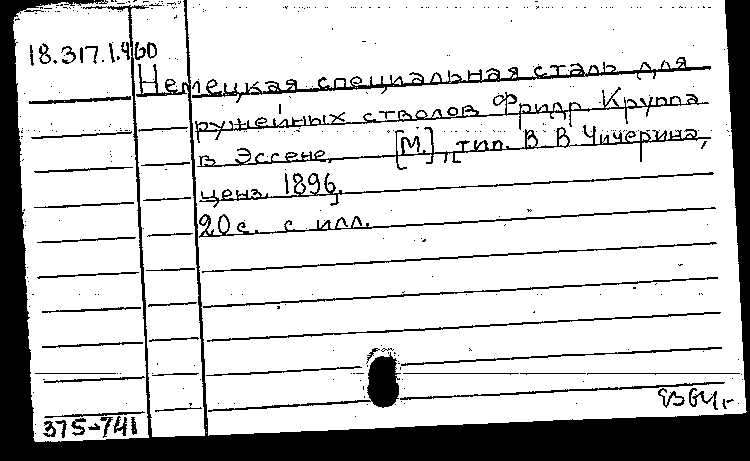 18.317.1.460
Немецкая специальная сталь для
ружейных стволов Фридр Круппа
в Эссене. [М.], [тип. В В Чичерина,
ценз. 1896].
20 с. с илл.
375-741